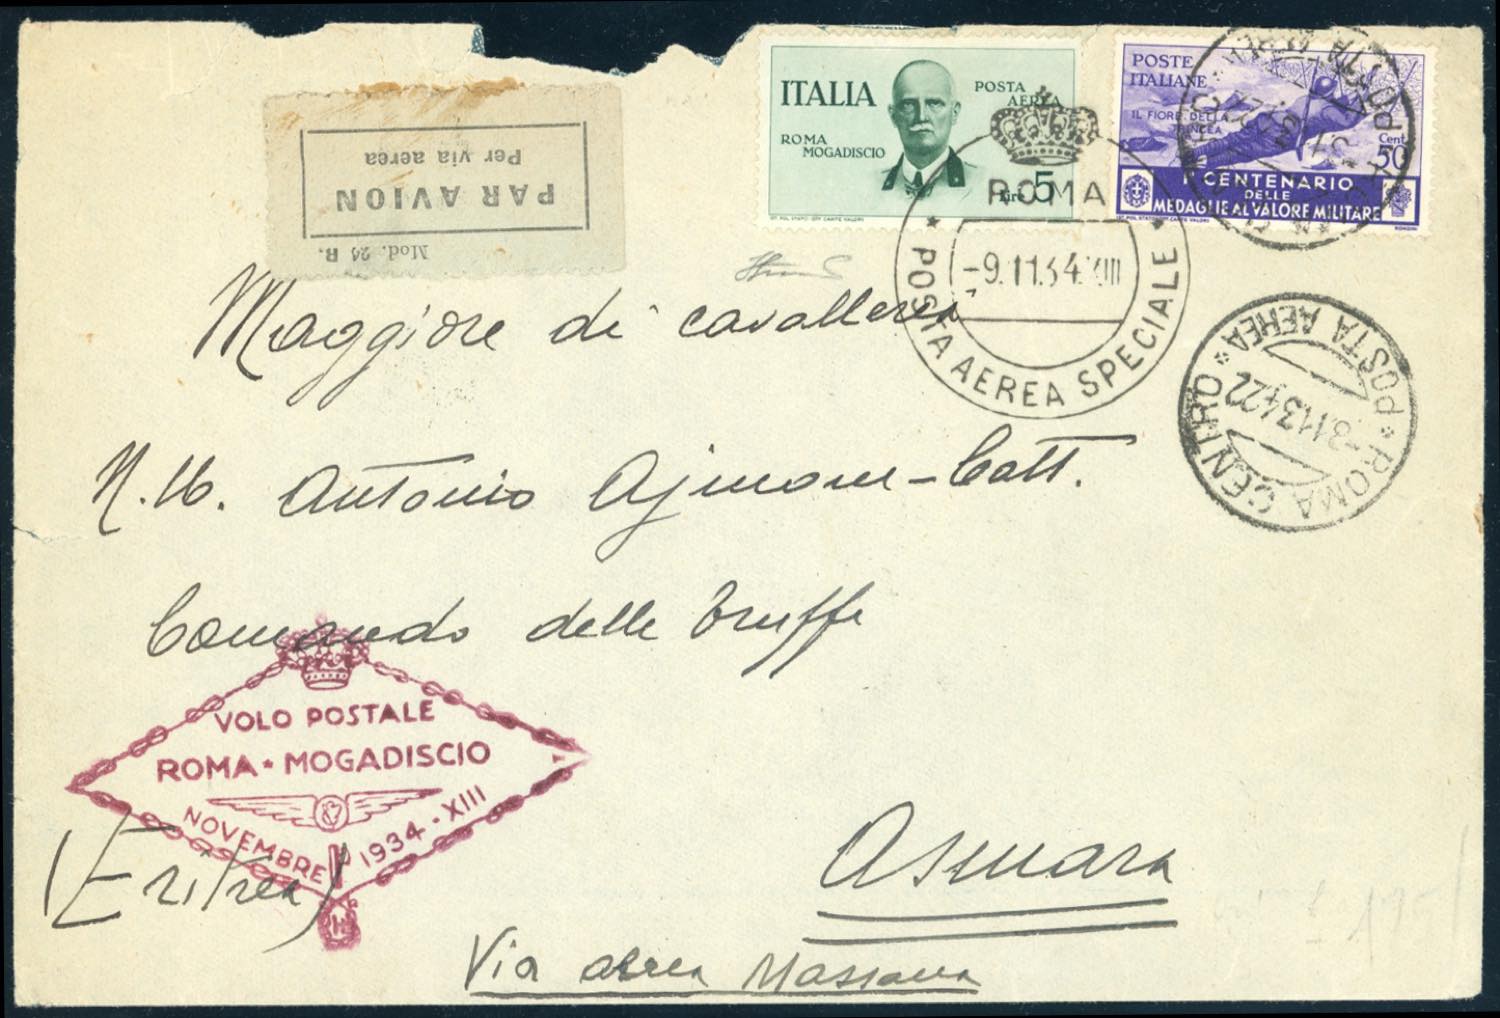 PAR AVION
Per via aerea
Mod. 24 B.
ITALIA
POSTA
AEREA
ROMA
MOGADISCIO
Lire 5
IST. POL. STATO OFF. CARTE VALORI
POSTE
ITALIANE
IL FIORE DELLA
Cent.
50
I° CENTENARIO
DELLE
MEDAGLIE AL VALORE MILITARE
ROMA
-9.11.34.XIII
* POSTA AEREA SPECIALE *
* ROMA CENTRO * POSTA AEREA
-8.11.34.22
Maggiore di cavalleria
N.H. Antonio Ajmone-Catt.
Comando delle Truppe
VOLO POSTALE
ROMA * MOGADISCIO
NOVEMBRE 1934 - XIII
Asmara
(Eritrea)
Via aerea Massaua